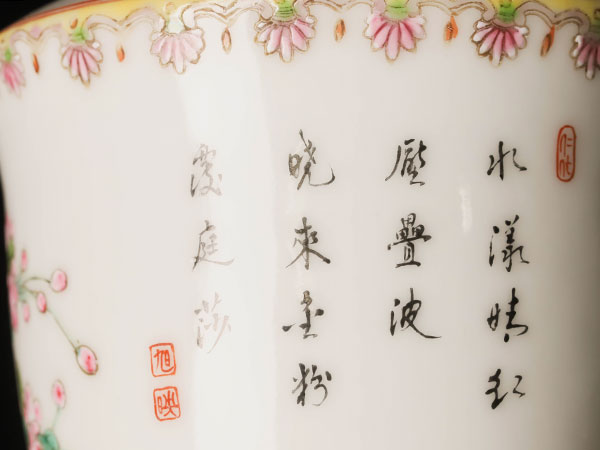 水漾晴红
壓疊波
晓來金粉
覆庭莎
旭
映